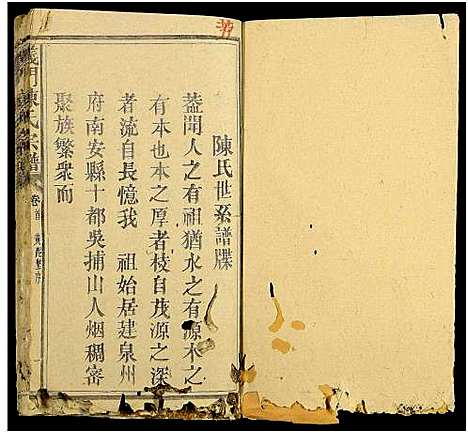 陳氏世系譜牒
蓋聞人之有祖猶水之有源木之
有本也本之厚者枝自茂源之深
者流自長憶我 祖始居建泉州
府南安縣十都吳捕山人烟稠密
聚族繁衆而
義門陳氏宗譜
卷首